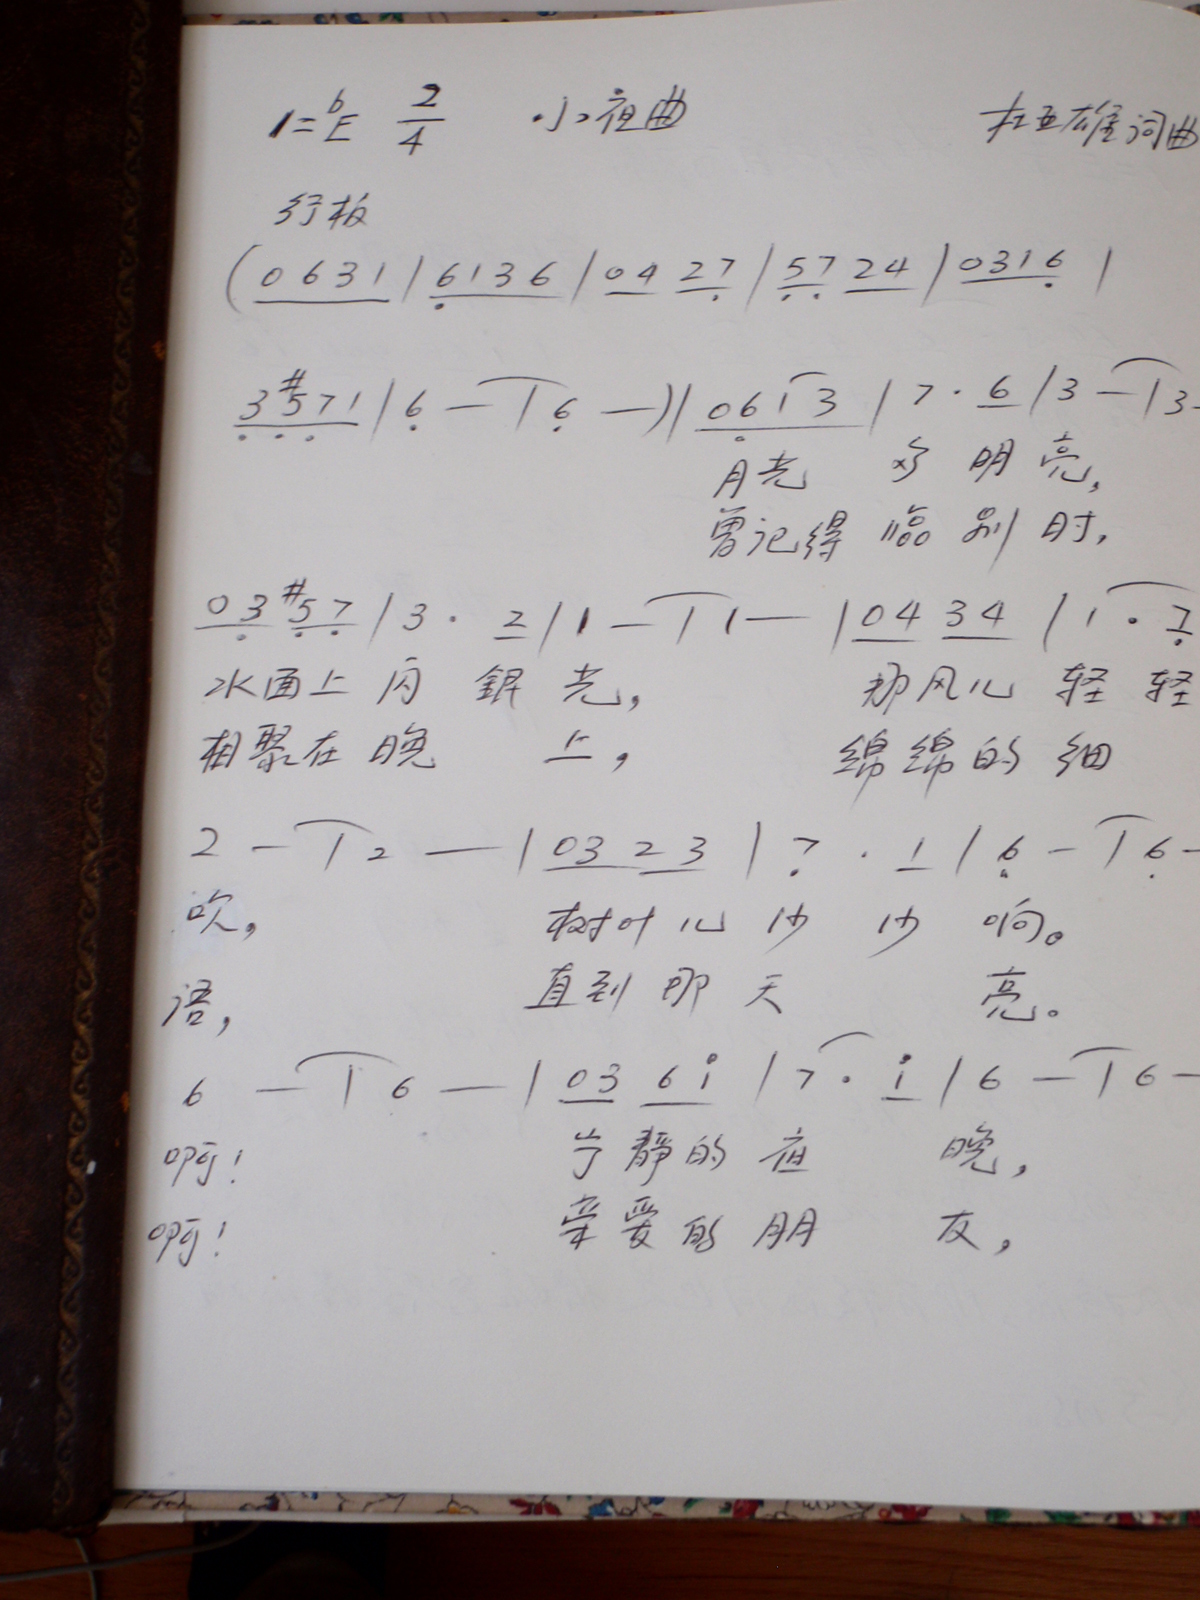 1=♭E 2/4 小夜曲 杜亚雄词曲
行板
(0631|6136|0427|5724|0316|
3#571|6—|6—)|0613|7·6|3—|3-
月光 多明亮,
曾记得临别时,
03#57|3·2|1—|1—|0434|1·7
水面上闪銀光, 那风儿轻轻
相聚在晚上, 绵绵的细
2—|2—|0323|7·1|6—|6-
吹, 树叶儿沙沙响。
语, 直到那天亮。
6—|6—|036i|7·i|6—|6-
啊! 宁靜的夜晚,
啊! 亲爱的朋友,